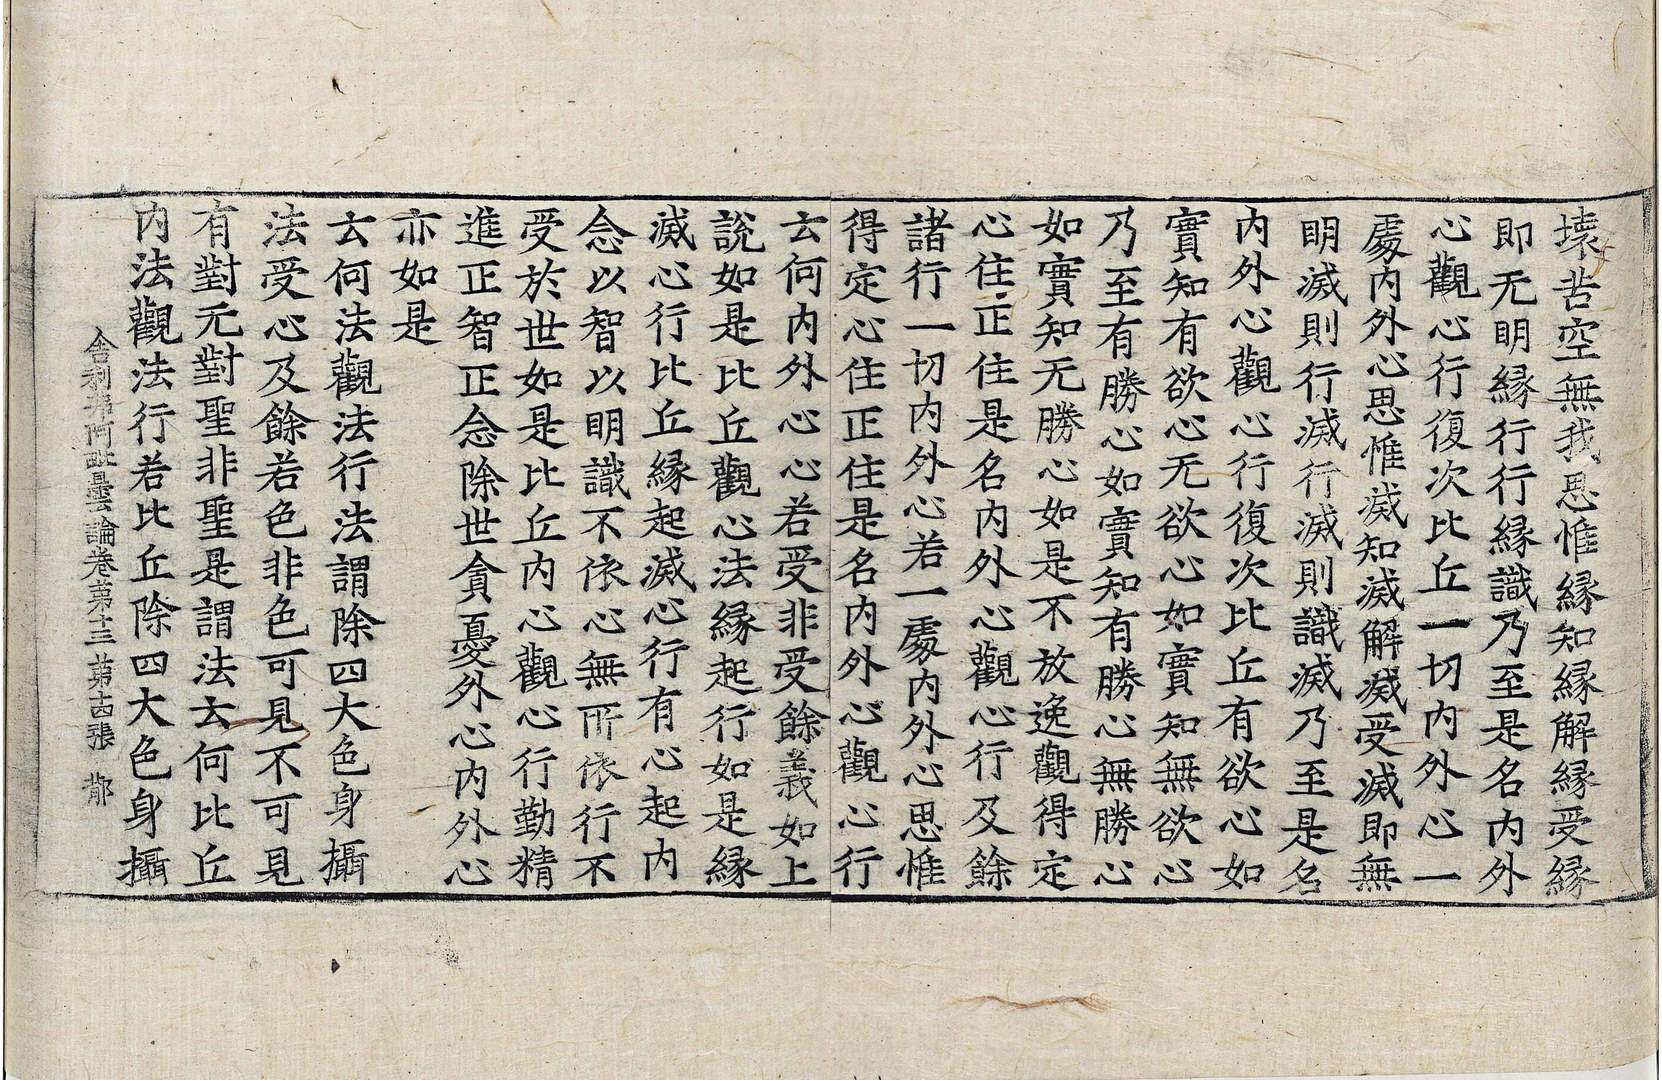 壊苦空無我思惟縁知縁解縁受縁
即无明縁行行縁識乃至是名内外
心觀心行復次比丘一切内外心一
處内外心思惟滅知滅解滅受滅即無
明滅則行滅行滅則識滅乃至是名
内外心觀心行復次比丘有欲心如
實知有欲心无欲心如實知無欲心
乃至有勝心如實知有勝心無勝心
如實知无勝心如是不放逸觀得定
心住正住是名内外心觀心行及餘
諸行一切内外心若一處内外心思惟
得定心住正住是名内外心觀心行
云何内外心心若受非受餘義如上
說如是比丘觀心法縁起行如是縁
滅心行比丘縁起滅心行有心起内
念以智以明識不依心無所依行不
受於世如是比丘内心觀心行勤精
進正智正念除世貪憂外心内外心
亦如是
云何法觀法行法謂除四大色身攝
法受心及餘若色非色可見不可見
有對无對聖非聖是謂法云何比丘
内法觀法行若比丘除四大色身攝
舍利弗阿毗曇論卷第十三 第十四張 鄁